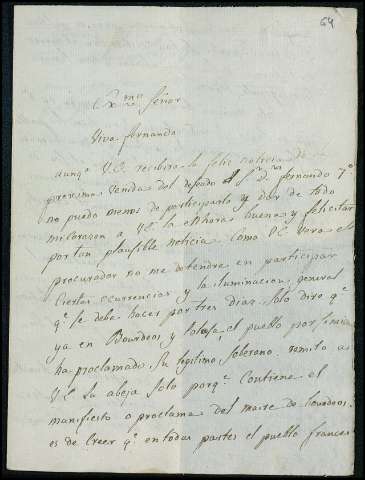 64
Exmo Señor
Viva Fernando
aunqe V.E. recibira la feliz noticia de
proxima venida del deseado Sr Dn fernando 7o
no puedo menos de participarlo y dar de todo
mi corazon a VE la enhora buena y felicitar
por tan plausible noticia. Como VE vera el
procurador no me detendre en participar
ciertas ocurrencias y la iluminacion general
qe se debe hacer por tres dias. solo diro qe
ya en Bourdeos, y tolosa, el pueblo por si
ha proclamado su legitimo soberano. remito a
VE la abeja solo porqe contiene el
manifiesto o proclama del maire de bourdeos.
es de creer qe en todas partes el pueblo frances